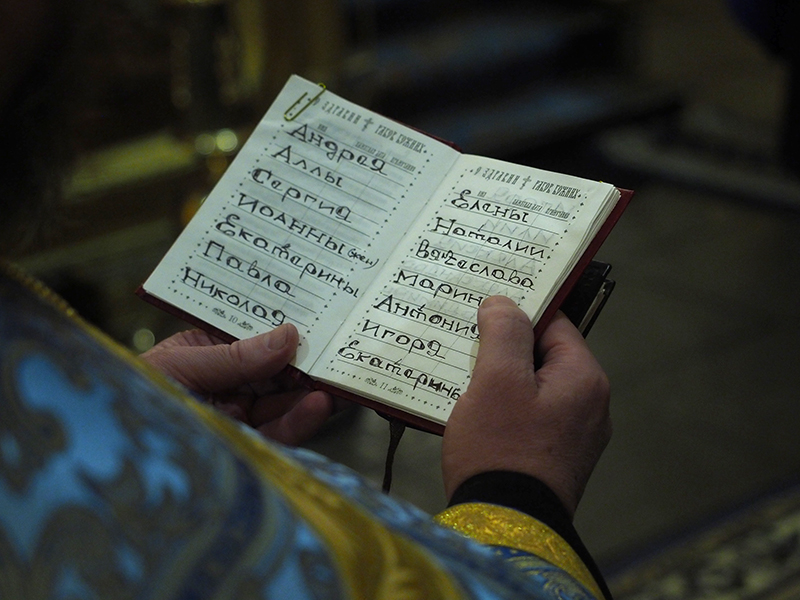 О ЗДРАВИИ
РАБОВ БОЖИИХ
Андрея
Аллы
Сергия
Иоанны (жен)
Екатерины
Павла
Николая
10
О ЗДРАВИИ
РАБОВ БОЖИИХ
Елены
Наталии
Вячеслава
Антония
Игоря
Екатерины
11